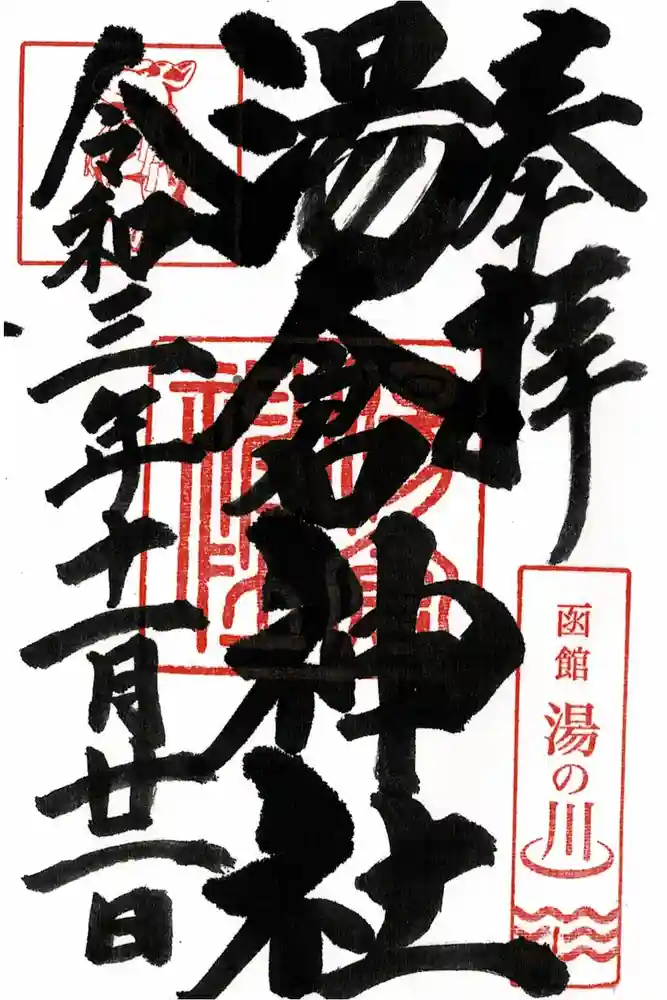 奉拝
函館 湯の川
湯倉神社
令和三年十一月廿一日